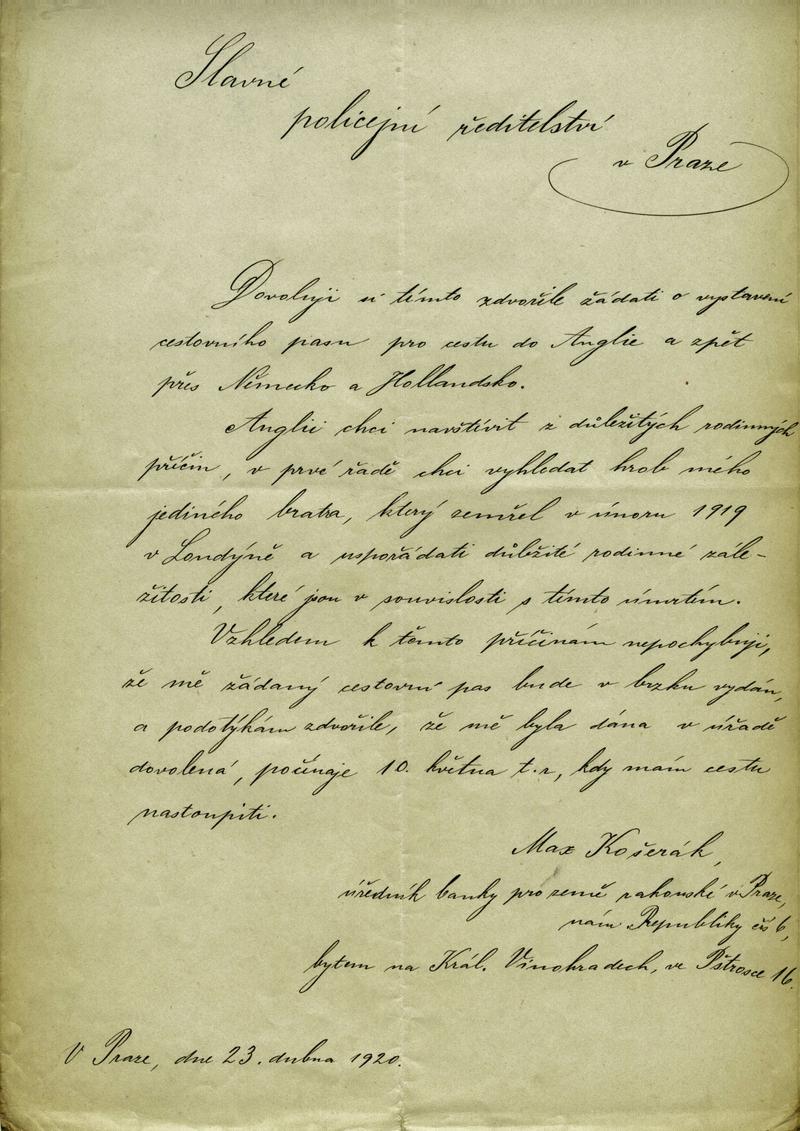 Slavné
policejní ředitelství
v Praze
Dovoluji si tímto zdvořile žádati o vystavení
cestovního pasu pro cestu do Anglie a zpět
přes Německo a Hollandsko.
Anglii chci navštívit z důležitých rodinných
příčin, v prvé řadě chci vyhledat hrob mého
jediného bratra, který zemřel v únoru 1919
v Londýně a uspořádati důležité rodinné zále-
žitosti, které jsou v souvislosti s tímto úmrtím.
Vzhledem k těmto příčinám nepochybuji,
že mě žádaný cestovní pas bude v brzku vydán,
a podotýkám zdvořile, že mě byla dána v úřadě
dovolená, počínaje 10. května t.r, kdy mám cestu
nastoupiti.
Max Košerák,
úředník banky pro země rakouské v Praze,
nám Republiky čís 6,
bytem na Král. Vinohradech, ve Pštrosce 16.
V Praze, dne 23. dubna 1920.